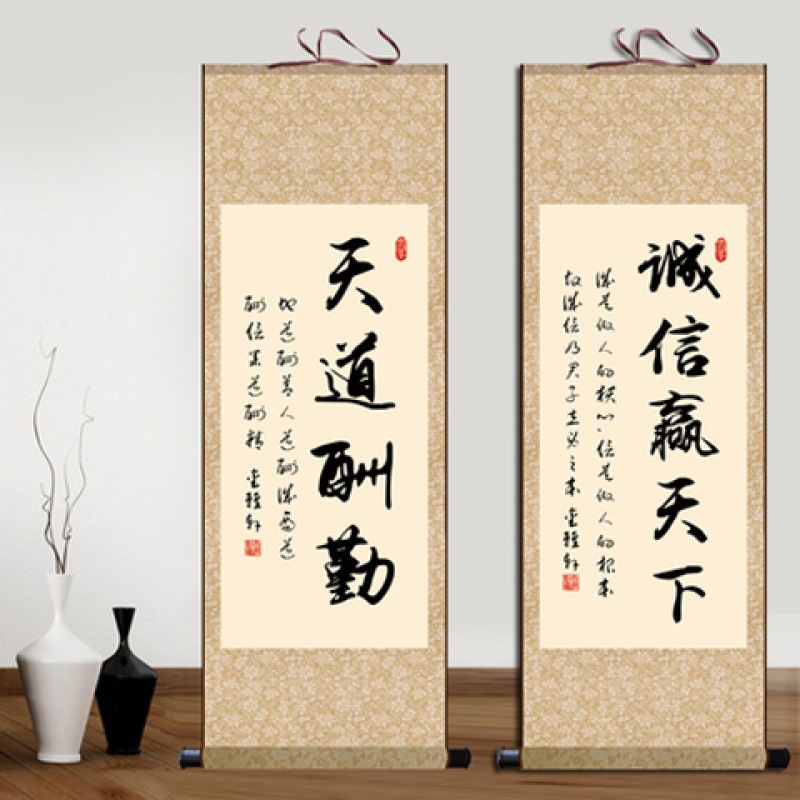 天道酬勤
地道酬善人道酬诚商道
酬信业道酬精
诚信赢天下
诚是做人的核心信是做人的根本
故诚信乃君子立身之本